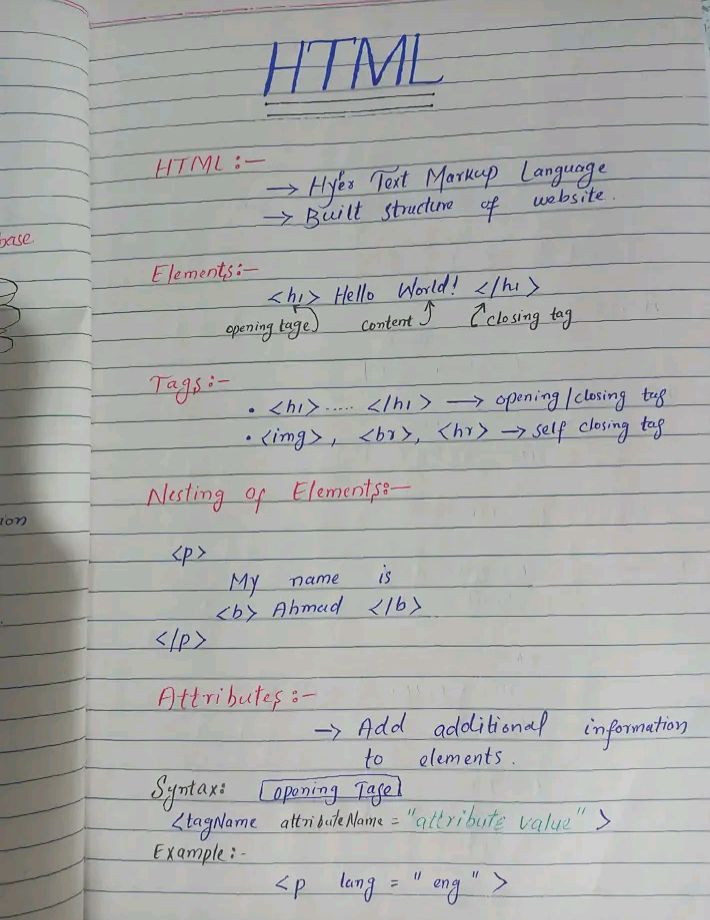 HTML
HTML :-
→ Hyper Text Markup Language
→ Built structure of website.
base.
Elements:-
<h1> Hello World! </h1>
opening tage content closing tag
Tags:-
• <h1> ..... </h1> → opening/closing tag
• <img>, <br>, <hr> → self closing tag
Nesting of Elements:-
ion
<p>
My name is
<b> Ahmad </b>
</p>
Attributes :-
→ Add additional information
to elements.
Syntax: opening Tage
<tagName attributeName = "attribute value" >
Example :-
<p lang = " eng " >